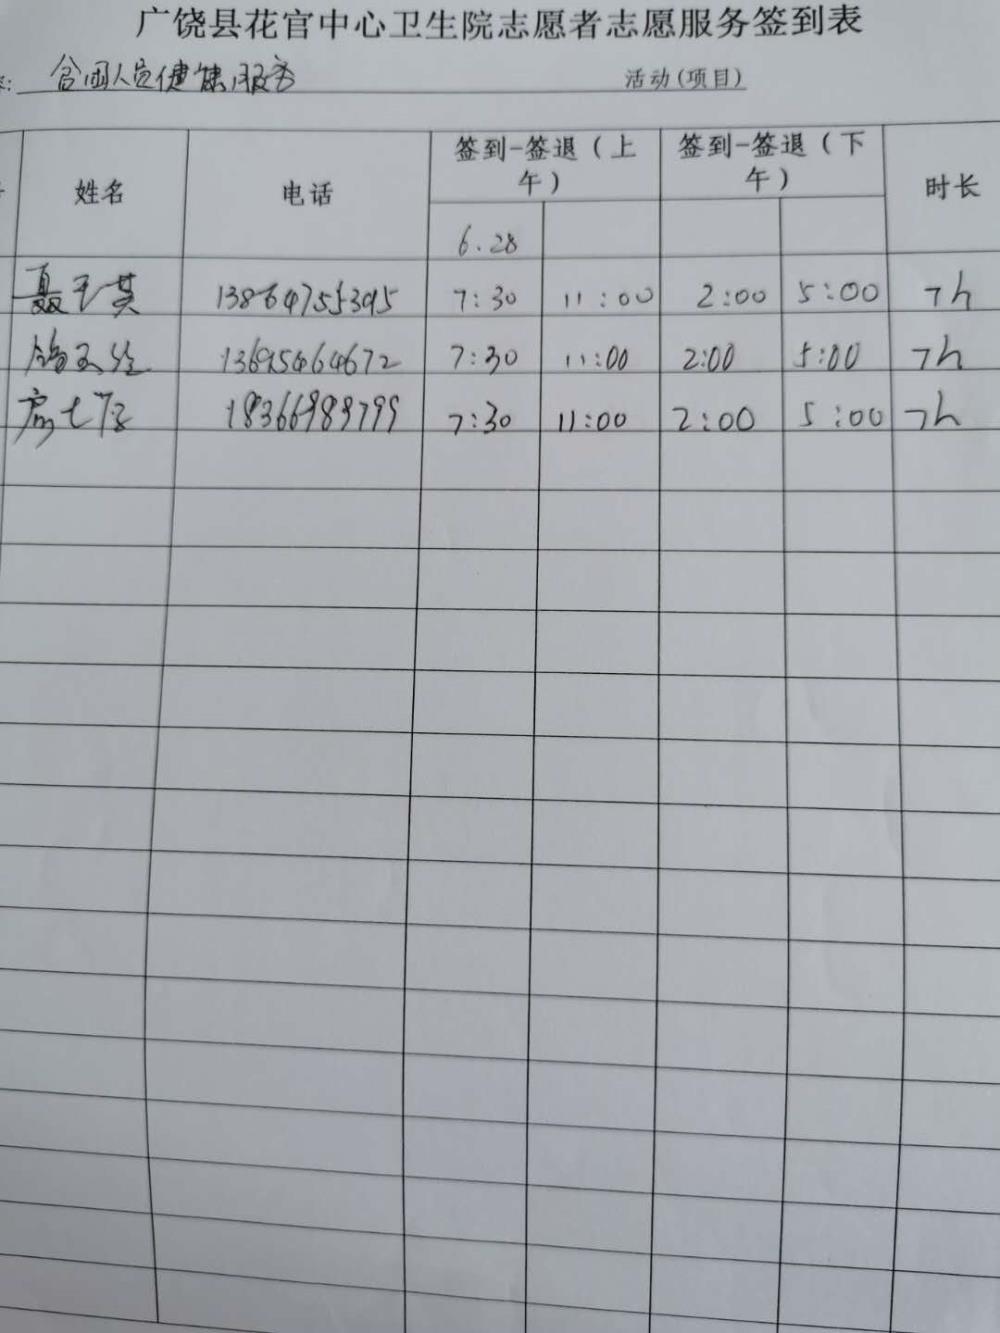 广饶县花官中心卫生院志愿者志愿服务签到表
贫困人员健康服务 活动(项目)
姓名 电话 签到-签退(上午) 签到-签退(下午) 时长
6.28
聂玉英 13864755395 7:30 11:00 2:00 5:00 7h
13695464672 7:30 11:00 2:00 5:00 7h
18366989799 7:30 11:00 2:00 5:00 7h